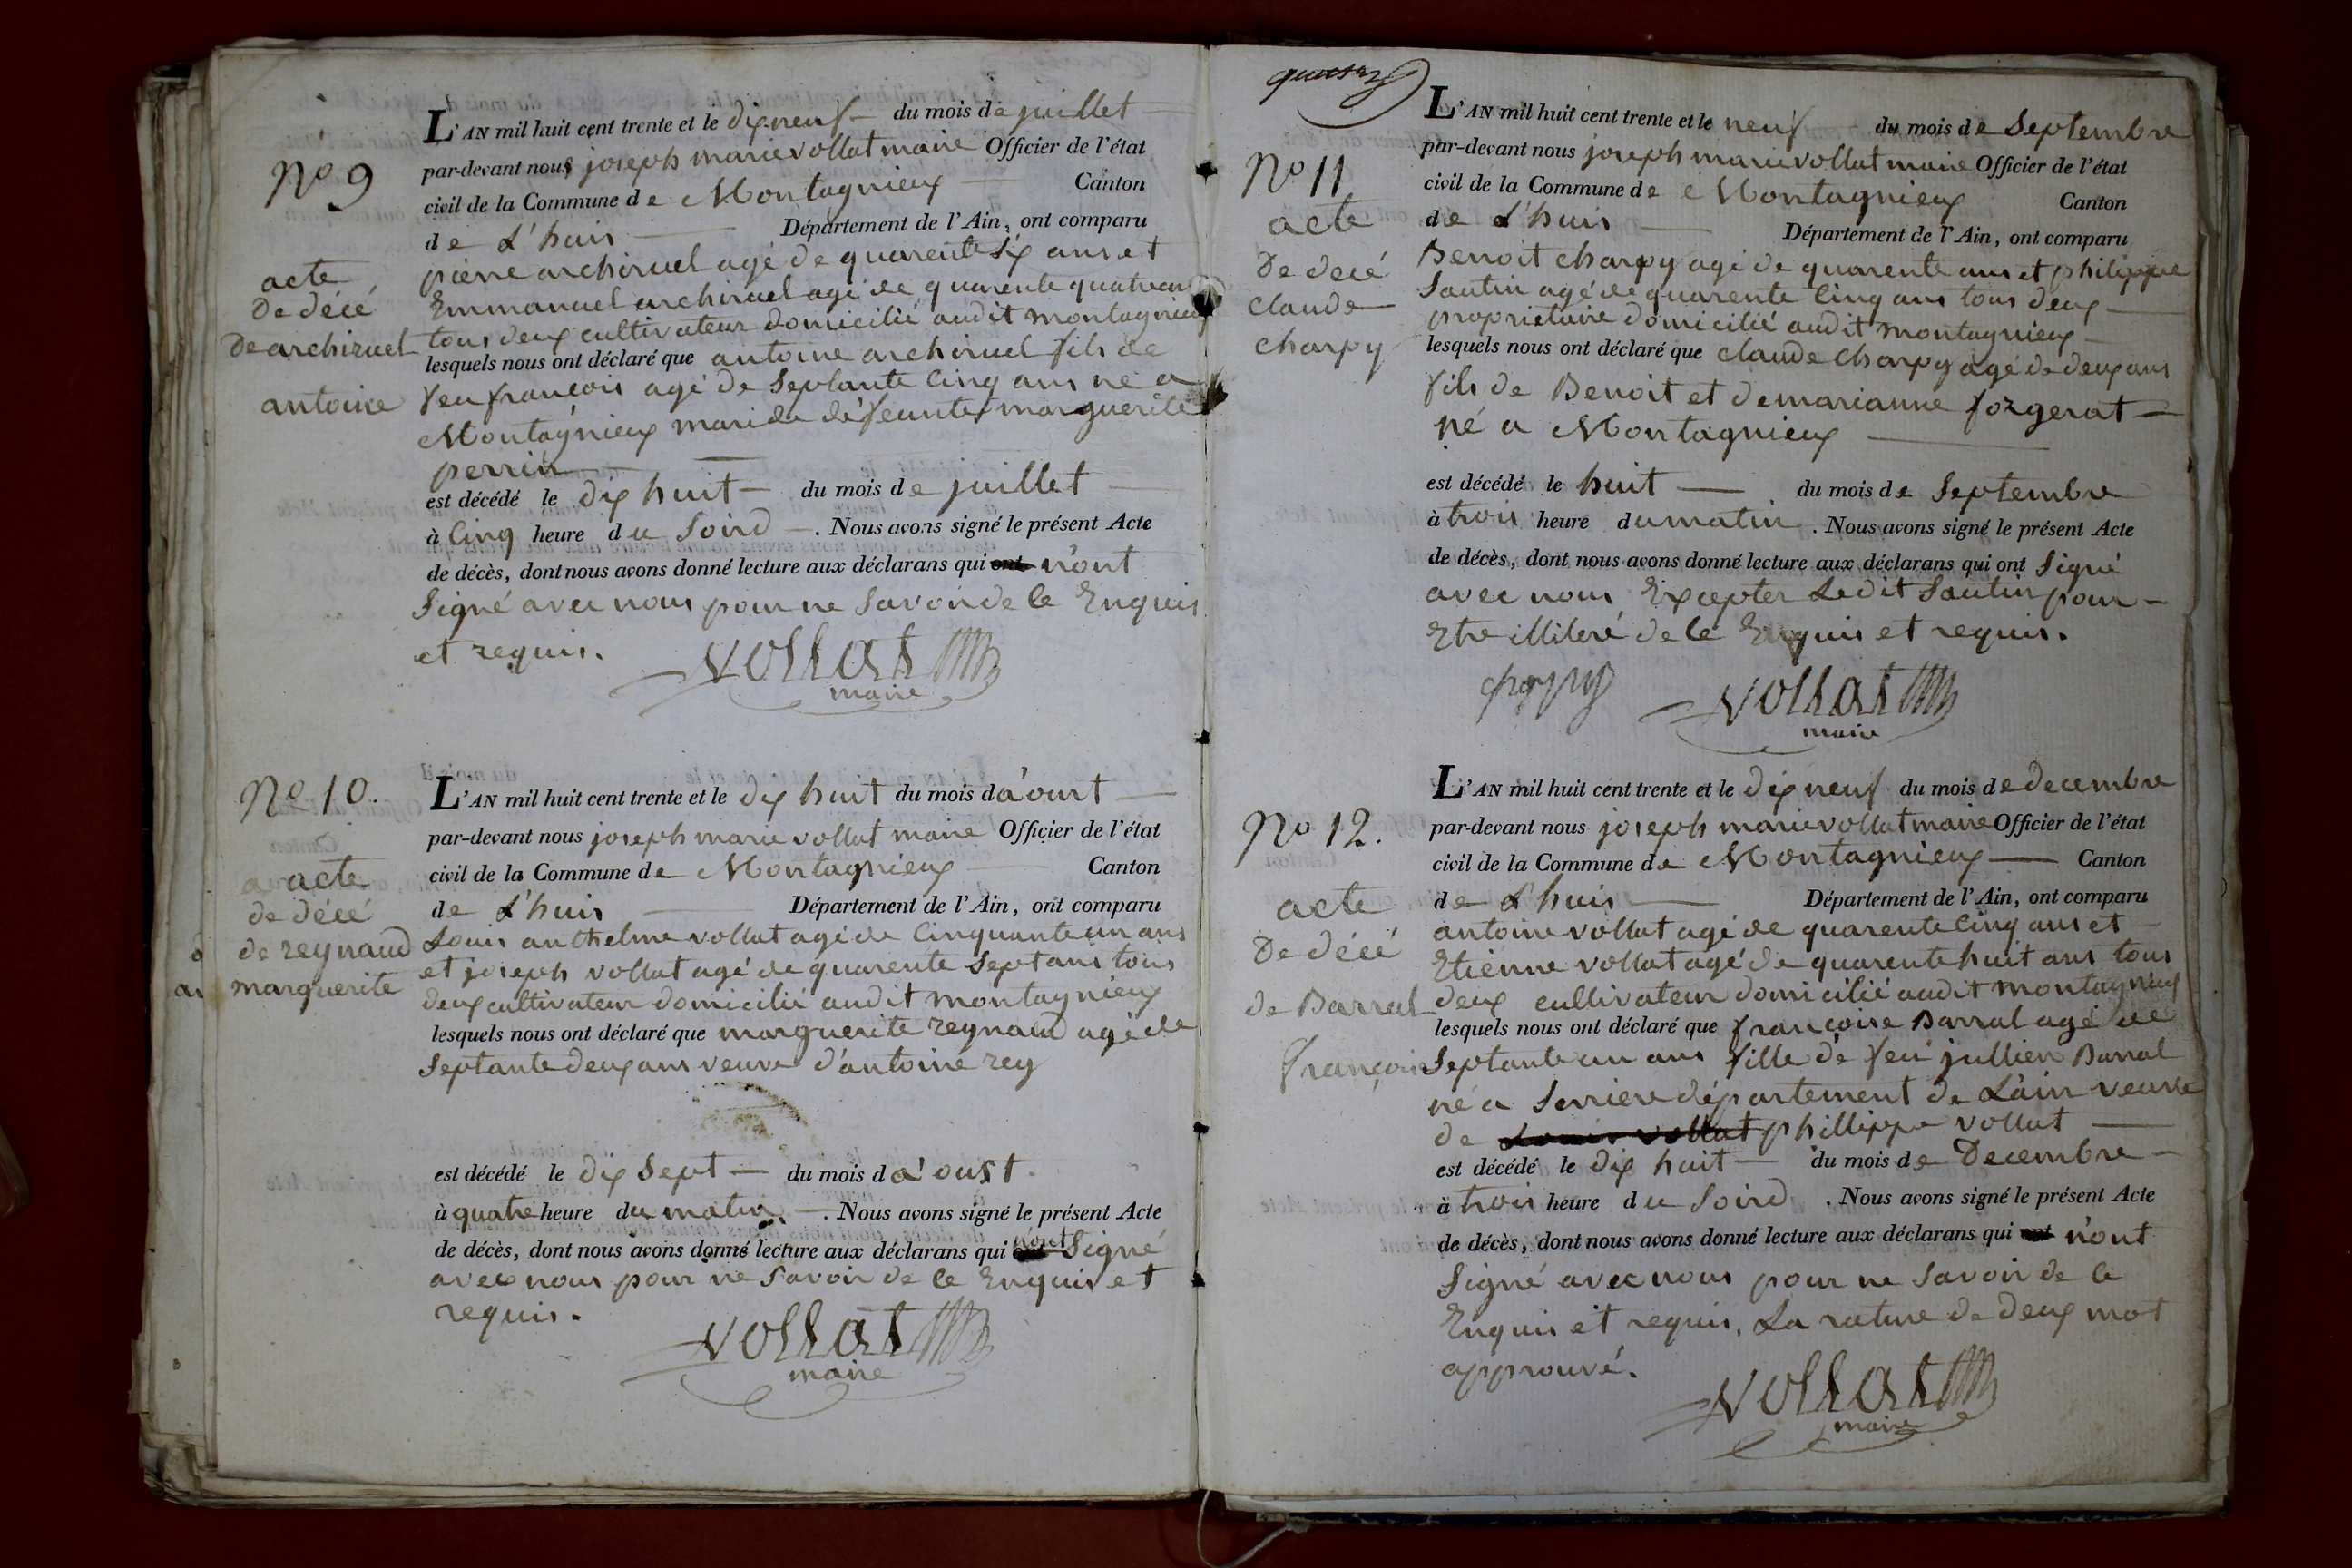 No 9
acte
De décé
De archiruel
antoine
L'AN mil huit cent trente et le dix neuf du mois de juillet
par-devant nous joseph marie vollat maire Officier de l'état
civil de la Commune de Montagnieux Canton
de L'huis Département de l'Ain, ont comparu
pierre archiruel agé de quarente six ans et
Emmanuel archiruel agé de quarente quatre ans
tous deux cultivateur domicilié audit montagnieux
lesquels nous ont déclaré que antoine archiruel fils de
feu françois agé de Septante cinq ans né a
Montagnieux mari de défeunte marguerite
perrin
est décédé le dix huit du mois de juillet
à cinq heure du Soird. Nous avons signé le présent Acte
de décès, dont nous avons donné lecture aux déclarans qui ont n'ont
Signé avec nous pour ne Savoir de ce Enquis
et requis.
vollat
maire
No 10.
acte
de décé
de reynaud
marguerite
L'AN mil huit cent trente et le dix huit du mois d'aoust
par-devant nous joseph marie vollat maire Officier de l'état
civil de la Commune de Montagnieux Canton
de L'huis Département de l'Ain, ont comparu
Louis anthelme vollat agé de Cinquante un ans
et joseph vollat agé de quarente Sept ans tous
deux cultivateur domicilié audit montagnieux
lesquels nous ont déclaré que marguerite reynaud agé de
Septante deux ans veuve d'antoine rey
est décédé le dix Sept du mois d'aoust.
à quatre heure du matin. Nous avons signé le présent Acte
de décès, dont nous avons donné lecture aux déclarans qui n'ont Signé
avec nous pour ne Savoir de ce Enquis et
requis.
vollat
maire
No 11
acte
De decé
claude
charpy
L'AN mil huit cent trente et le neuf du mois de Septembre
par-devant nous joseph marie vollat maire Officier de l'état
civil de la Commune de Montagnieux Canton
de L'huis Département de l'Ain, ont comparu
Benoit charpy agé de quarente ans et philippe
Sautin agé de quarente Cinq ans tous deux
proprietaire domicilié audit montagnieux
lesquels nous ont déclaré que claude charpy agé de deux ans
fils de Benoit et de marianne forgerat
né a Montagnieux
est décédé le huit du mois de Septembre
à trois heure du matin. Nous avons signé le présent Acte
de décès, dont nous avons donné lecture aux déclarans qui ont Signé
avec nous Excepter Ledit Sautin pour
Etre illiteré de ce Enquis et requis.
charpy
vollat
maire
No 12.
acte
De décé
de Barral
françoise
L'AN mil huit cent trente et le dix neuf du mois de decembre
par-devant nous joseph marie vollat maire Officier de l'état
civil de la Commune de Montagnieux Canton
de L'huis Département de l'Ain, ont comparu
antoine vollat agé de quarente cinq ans et
Etienne vollat agé de quarente huit ans tous
deux cultivateur domicilié audit montagnieux
lesquels nous ont déclaré que françoise Barral agé de
Septante un ans fille de feu jullien Barral
né a Serriere département de L'ain veuve
de Louis vollat phillippe vollat
est décédé le dix huit du mois de Decembre
à trois heure du Soird. Nous avons signé le présent Acte
de décès, dont nous avons donné lecture aux déclarans qui ont n'ont
Signé avec nous pour ne Savoir de ce
Enquis et requis. La rature de deux mot
approuvé.
vollat
maire